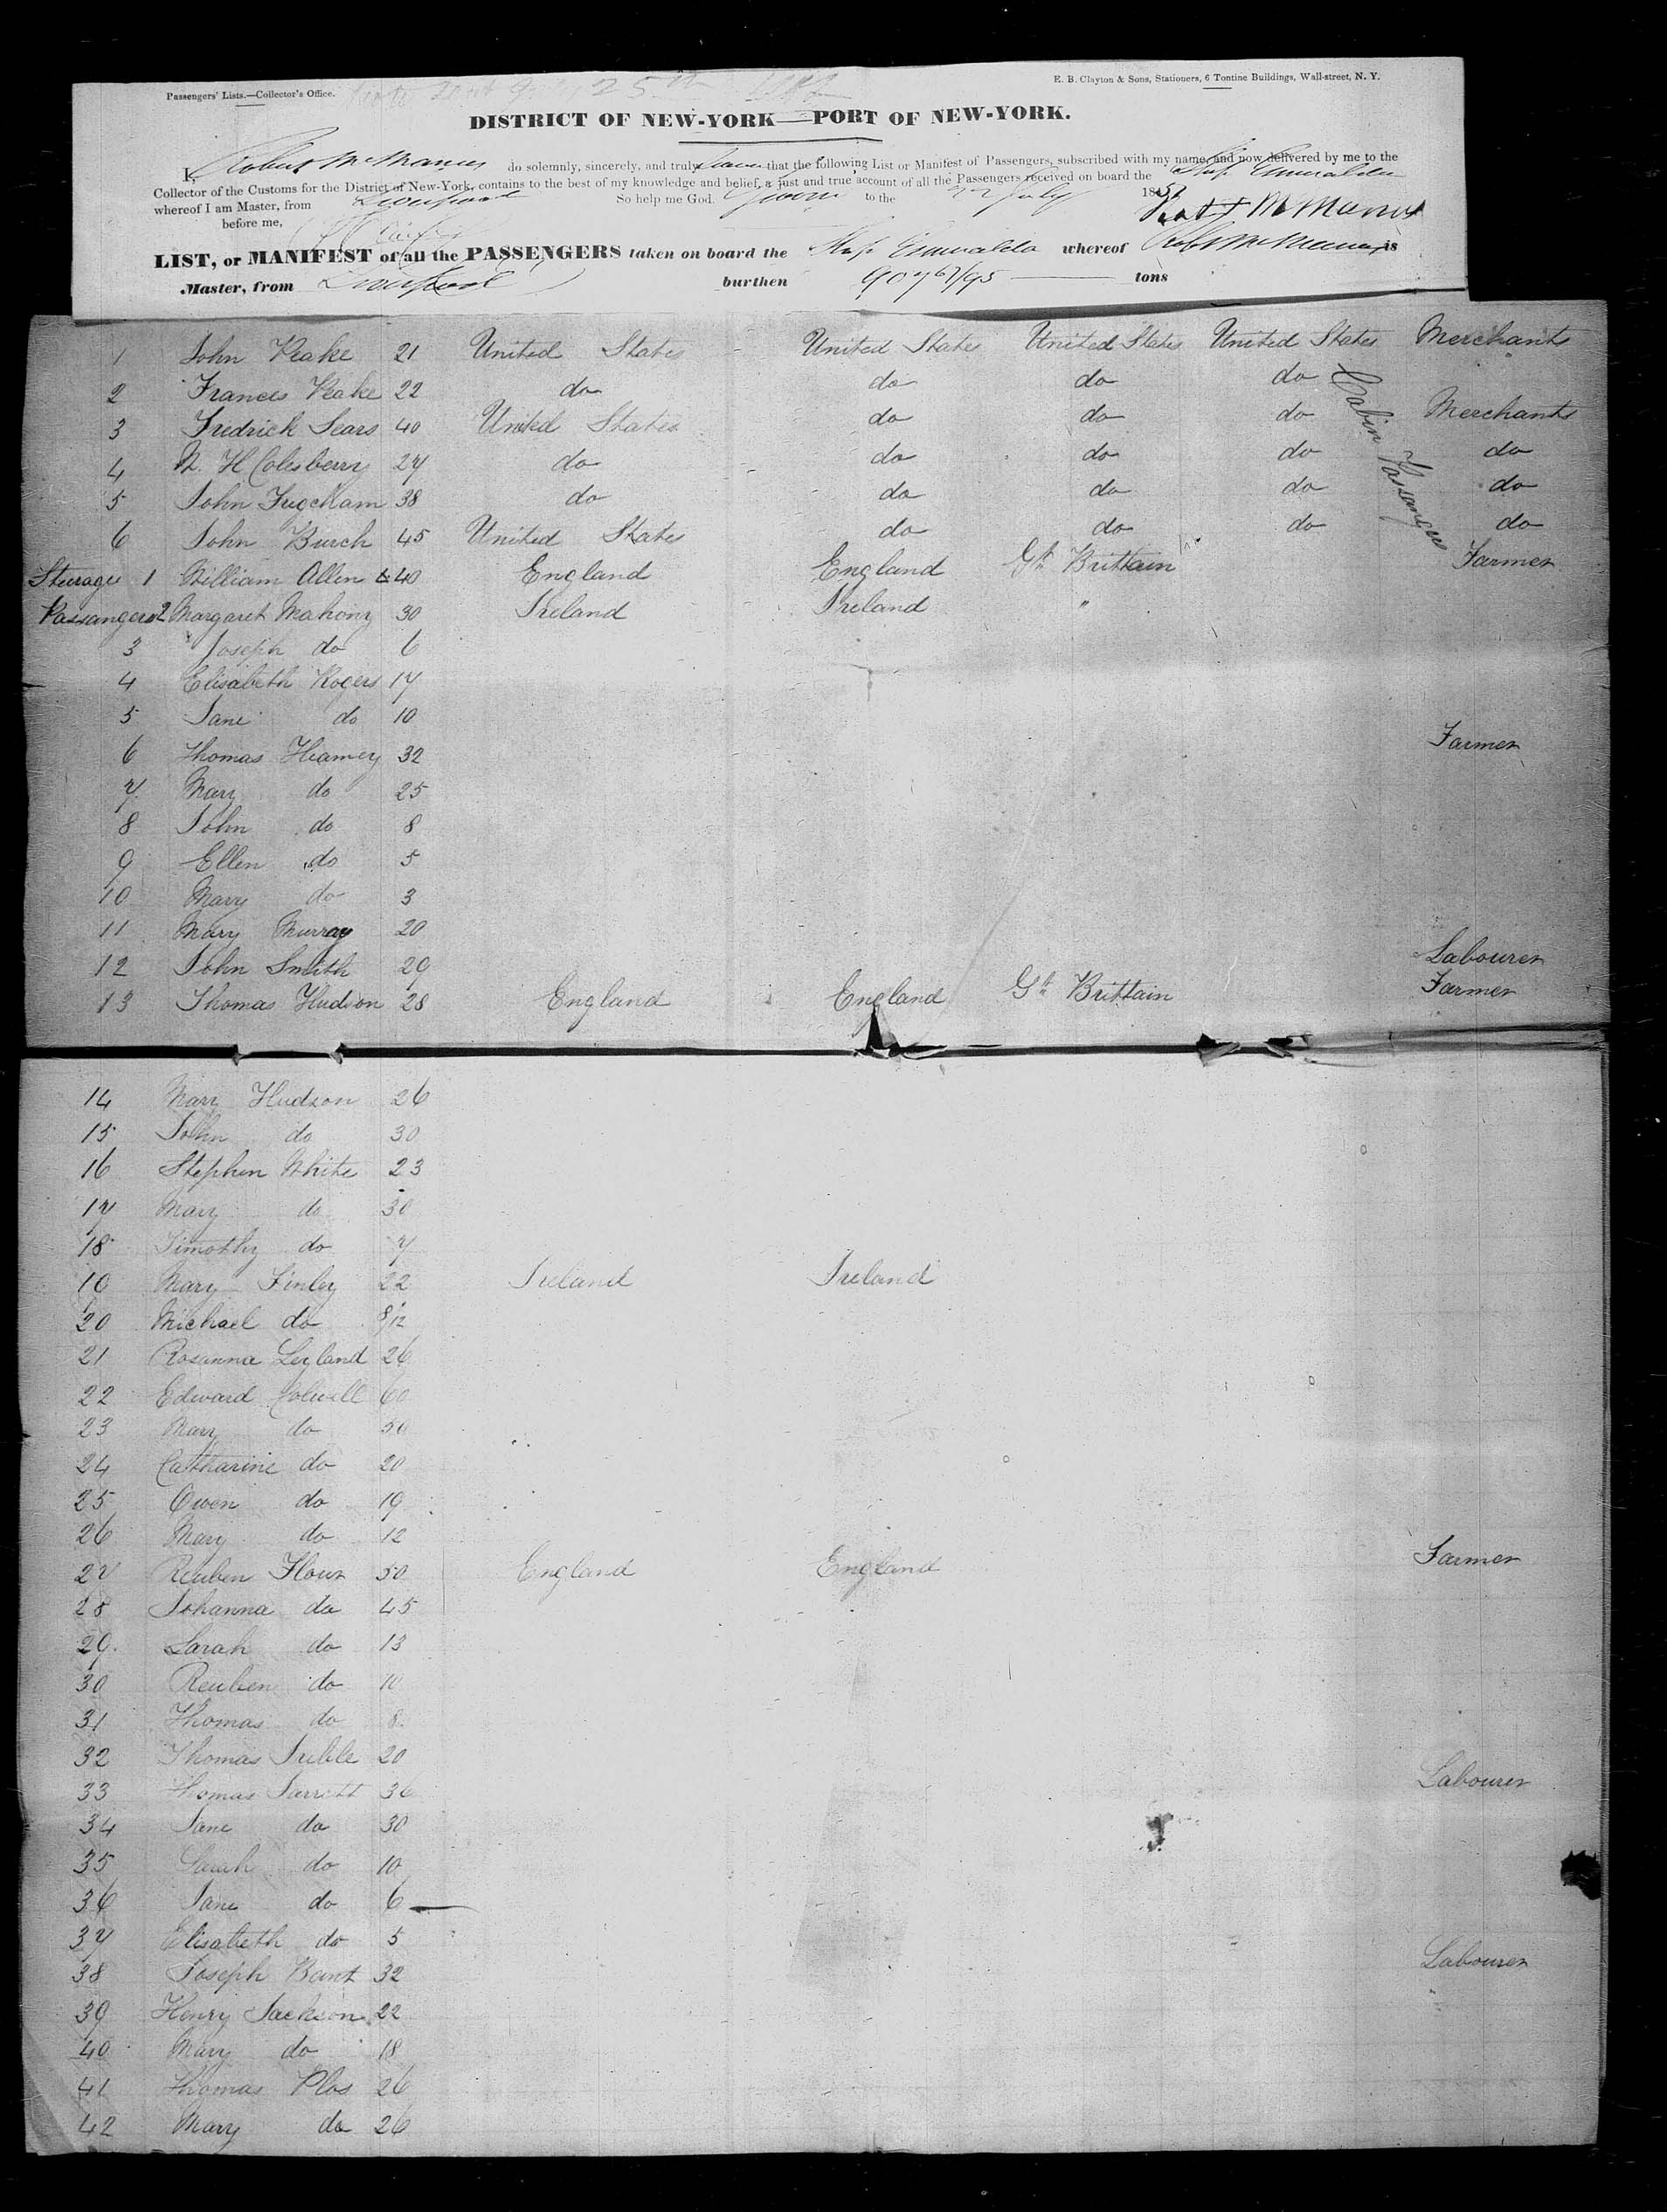 Passengers' Lists.—Collector's Office.
E. B. Clayton & Sons, Stationers, 6 Tontine Buildings, Wall-street, N. Y.
DISTRICT OF NEW-YORK—PORT OF NEW-YORK.
I, Robert McManus do solemnly, sincerely, and truly swear that the following List or Manifest of Passengers, subscribed with my name, and now delivered by me to the
Collector of the Customs for the District of New-York, contains to the best of my knowledge and belief, a just and true account of all the Passengers received on board the Ship Esmeralda
whereof I am Master, from Liverpool So help me God. Sworn to the 22 July 185
before me, Robt McManus
LIST, or MANIFEST of all the PASSENGERS taken on board the Ship Esmeralda whereof Robt McManus is
Master, from Liverpool burthen 907 67/95 tons
1 John Peake 21 United States United States United States United States Merchants
2 Frances Peake 22 do do do do
3 Fredrick Sears 40 United States do do do Merchants
4 H Colesberry 27 do do do do do
5 John 38 do do do do do
6 John Burch 45 United States do do do do
Cabin Passangers
Sturage 1 William Allen 40 England England Gt Brittain Farmer
Passangers 2 Margaret Mahony 30 Ireland Ireland "
3 Joseph do 6
4 Elisabeth Rogers 17
5 Jane do 10
6 Thomas Heamey 32 Farmer
7 Mary do 25
8 John do 8
9 Ellen do 5
10 Mary do 3
11 Mary Murray 20
12 John Smith 29 Labourer
13 Thomas Hudson 28 England England Gt Brittain Farmer
14 Mary Hudson 26
15 John do 30
16 Stephen White 23
17 Mary do 30
18 Timothy do 7
19 Mary Finley 22 Ireland Ireland
20 Michael do 8/12
21 Rosanna Leyland 26
22 Edward Colwell 60
23 Mary do 50
24 Catharine do 20
25 Owen do 19
26 Mary do 12
27 Reuben Flour 50 England England Farmer
28 Johanna do 45
29 Sarah do 13
30 Reuben do 10
31 Thomas do 8
32 Thomas 20
33 Thomas Jarrett 36 Labourer
34 Jane do 30
35 Sarah do 10
36 Jane do 6
37 Elisabeth do 5
38 Joseph Bant 32 Labourer
39 Henry Jackson 22
40 Mary do 18
41 Thomas Plos 26
42 Mary do 26